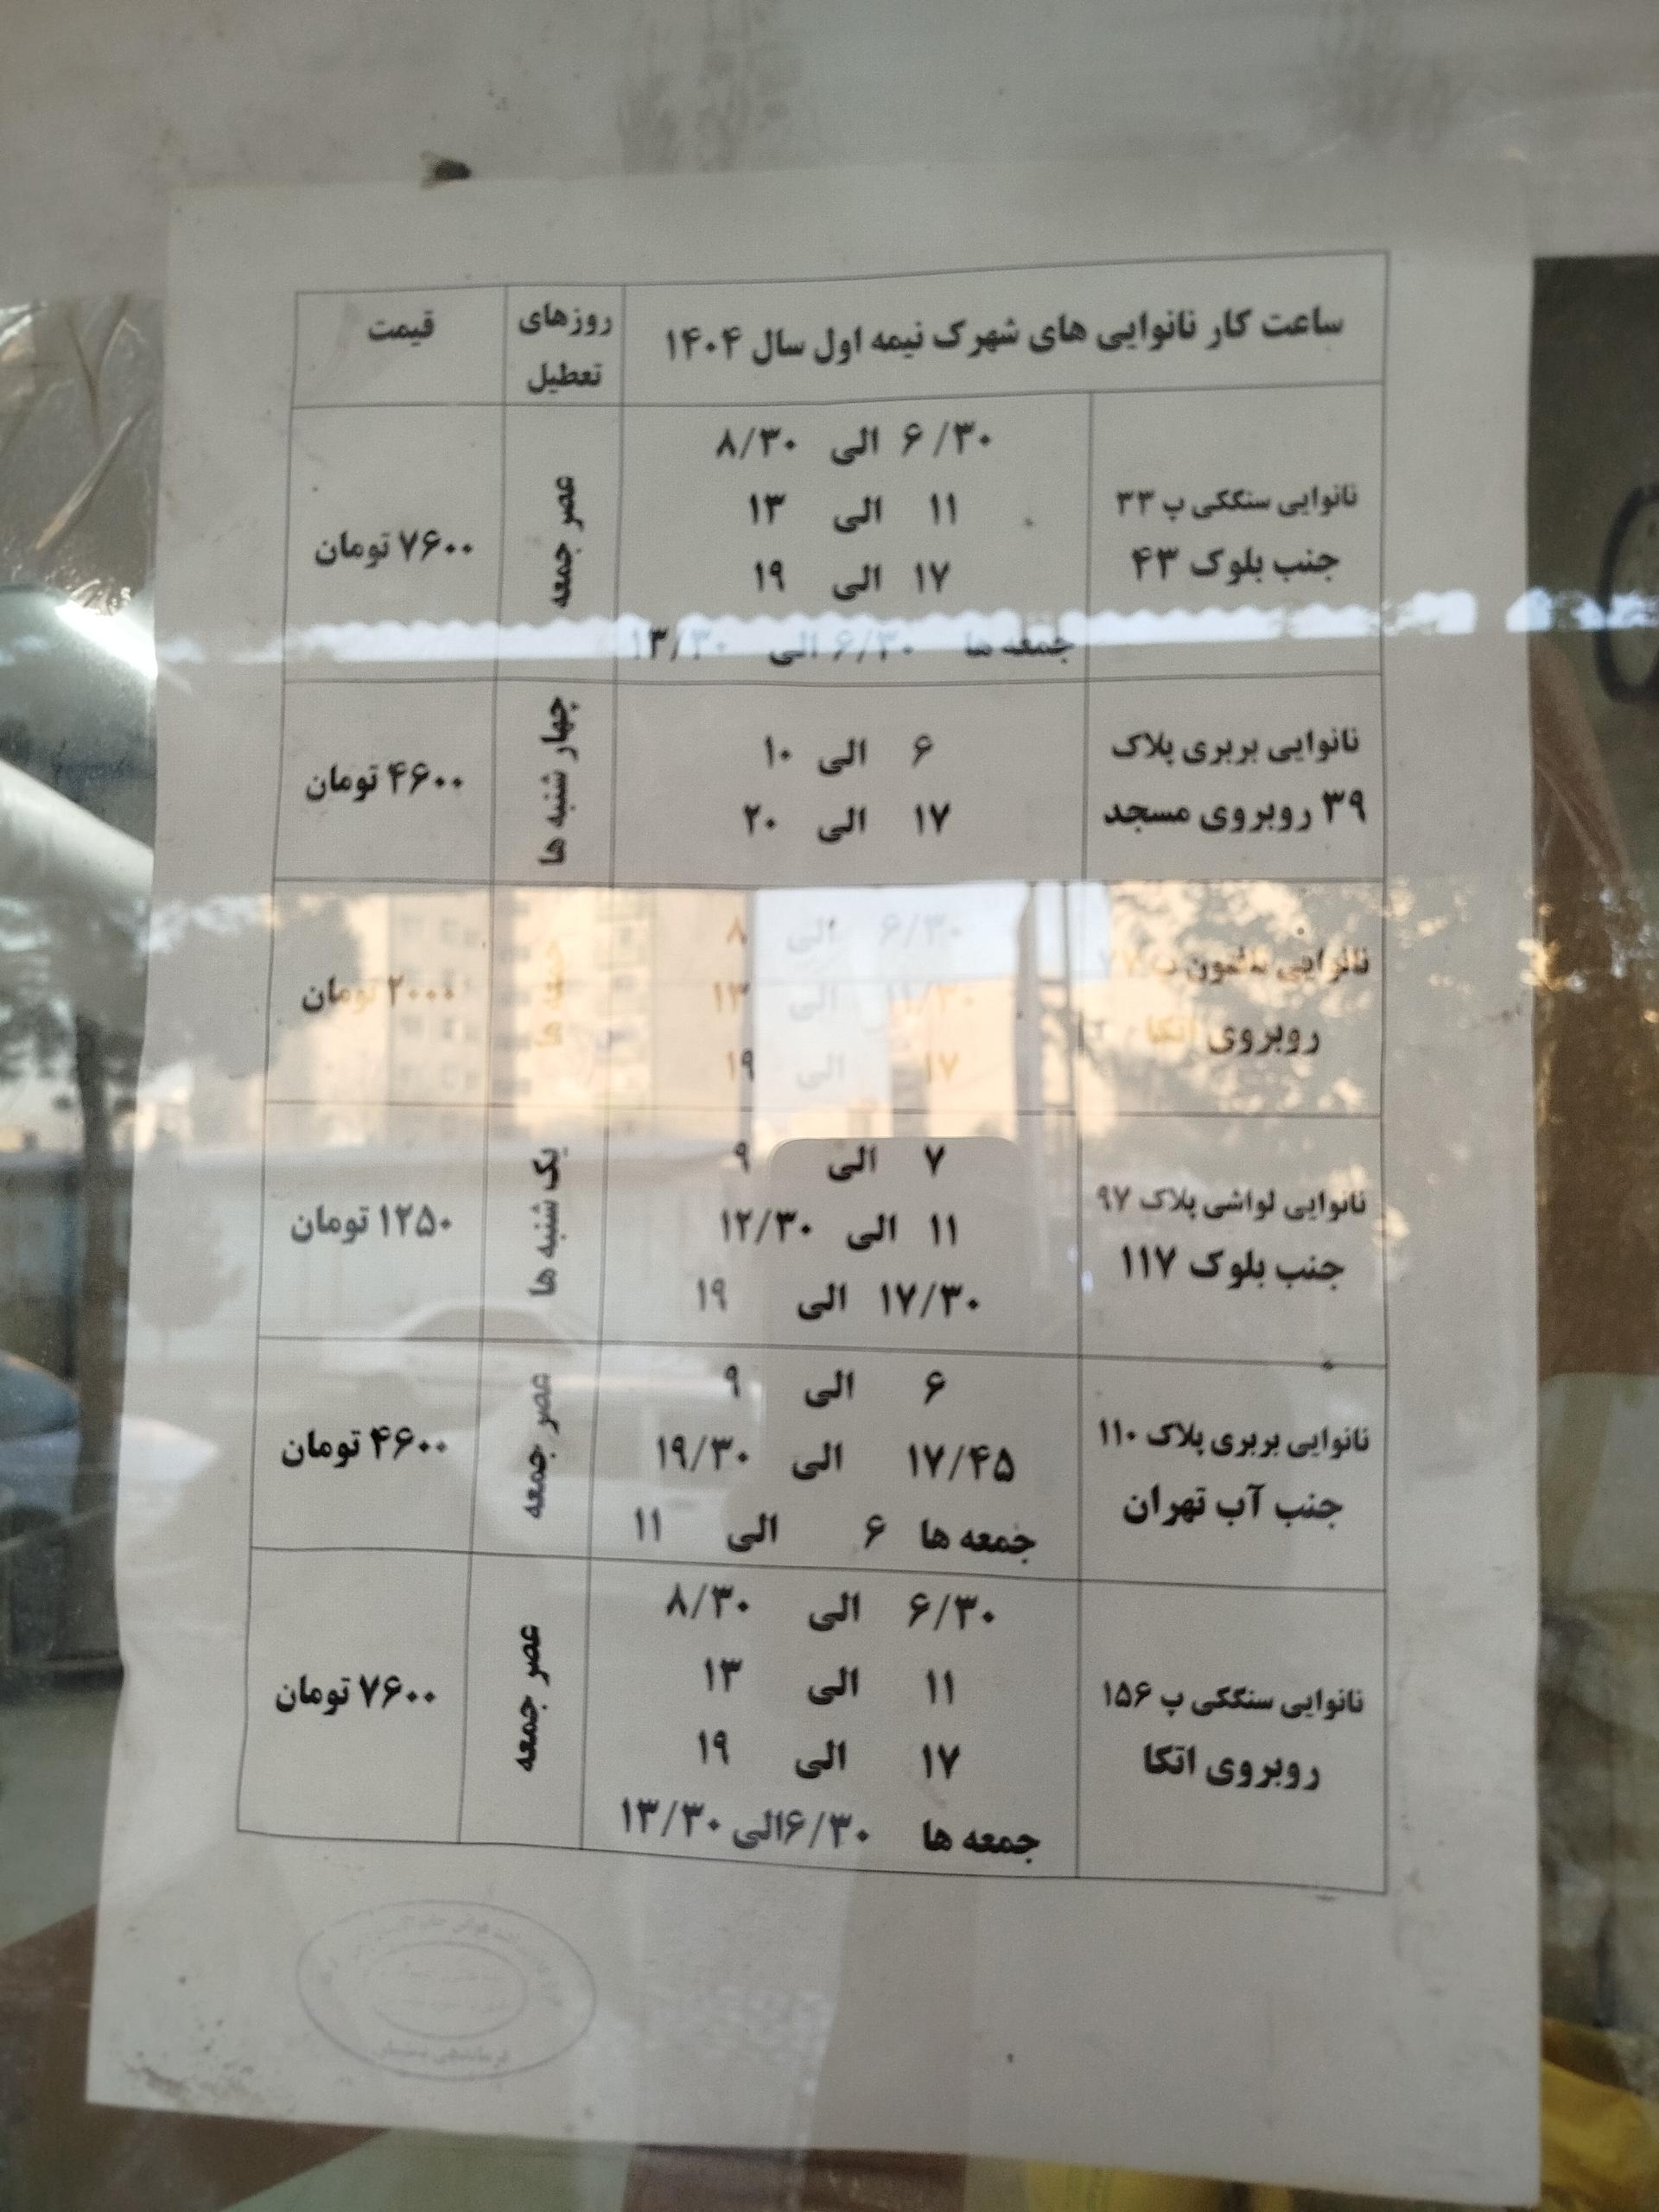 ساعت کار نانوایی های شهرک نیمه اول سال ۱۴۰۴
روزهای
تعطیل
قیمت
نانوایی سنگکی پ ۳۳
جنب بلوک ۴۳
۶/۳۰ الی ۸/۳۰
۱۱ الی ۱۳
۱۷ الی ۱۹
جمعه ها ۶/۳۰ الی ۱۳/۳۰
عصر جمعه
۷۶۰۰ تومان
نانوایی بربری پلاک
۳۹ روبروی مسجد
۶ الی ۱۰
۱۷ الی ۲۰
چهار شنبه ها
۴۶۰۰ تومان
نانوایی
روبروی اتکا
۶/۳۰ الی ۸
۱۱/۳۰ الی ۱۳
۱۷ الی ۱۹
۲۰۰۰ تومان
نانوایی لواشی پلاک ۹۷
جنب بلوک ۱۱۷
۷ الی ۹
۱۱ الی ۱۲/۳۰
۱۷/۳۰ الی ۱۹
یک شنبه ها
۱۲۵۰ تومان
نانوایی بربری پلاک ۱۱۰
جنب آب تهران
۶ الی ۹
۱۷/۴۵ الی ۱۹/۳۰
جمعه ها ۶ الی ۱۱
عصر جمعه
۴۶۰۰ تومان
نانوایی سنگکی پ ۱۵۶
روبروی اتکا
۶/۳۰ الی ۸/۳۰
۱۱ الی ۱۳
۱۷ الی ۱۹
جمعه ها ۶/۳۰الی ۱۳/۳۰
عصر جمعه
۷۶۰۰ تومان